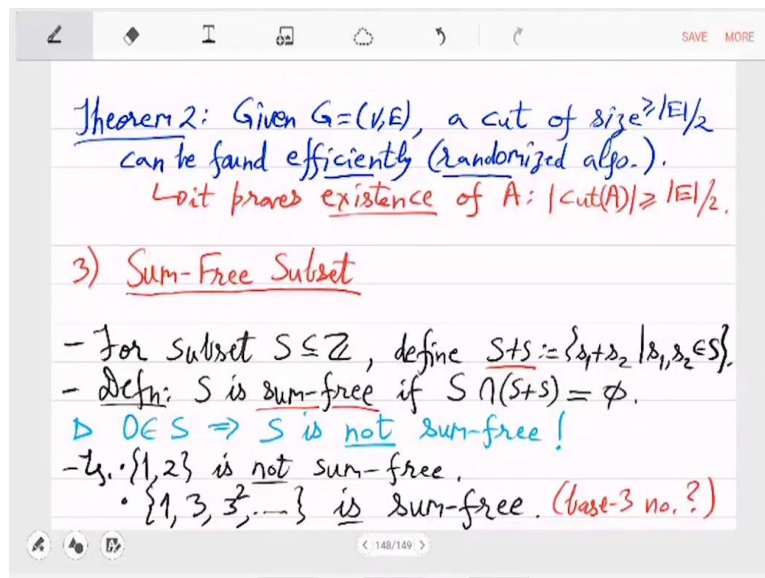 T
SAVE MORE
Theorem 2: Given G=(V,E), a cut of size ≥|E|/2
can be found efficiently (randomized algo.).
↳it proves existence of A: |Cut(A)| ≥ |E|/2.
3) Sum-Free Subset
- For subset S⊆ℤ, define S+S := {s₁+s₂ | s₁,s₂∈S}.
- Defn: S is sum-free if S∩(S+S) = ∅.
▷ 0∈S ⇒ S is not sum-free!
- Eg. • {1,2} is not sum-free.
• {1, 3, 3², ...} is sum-free. (base-3 no.?)
< 148/149 >